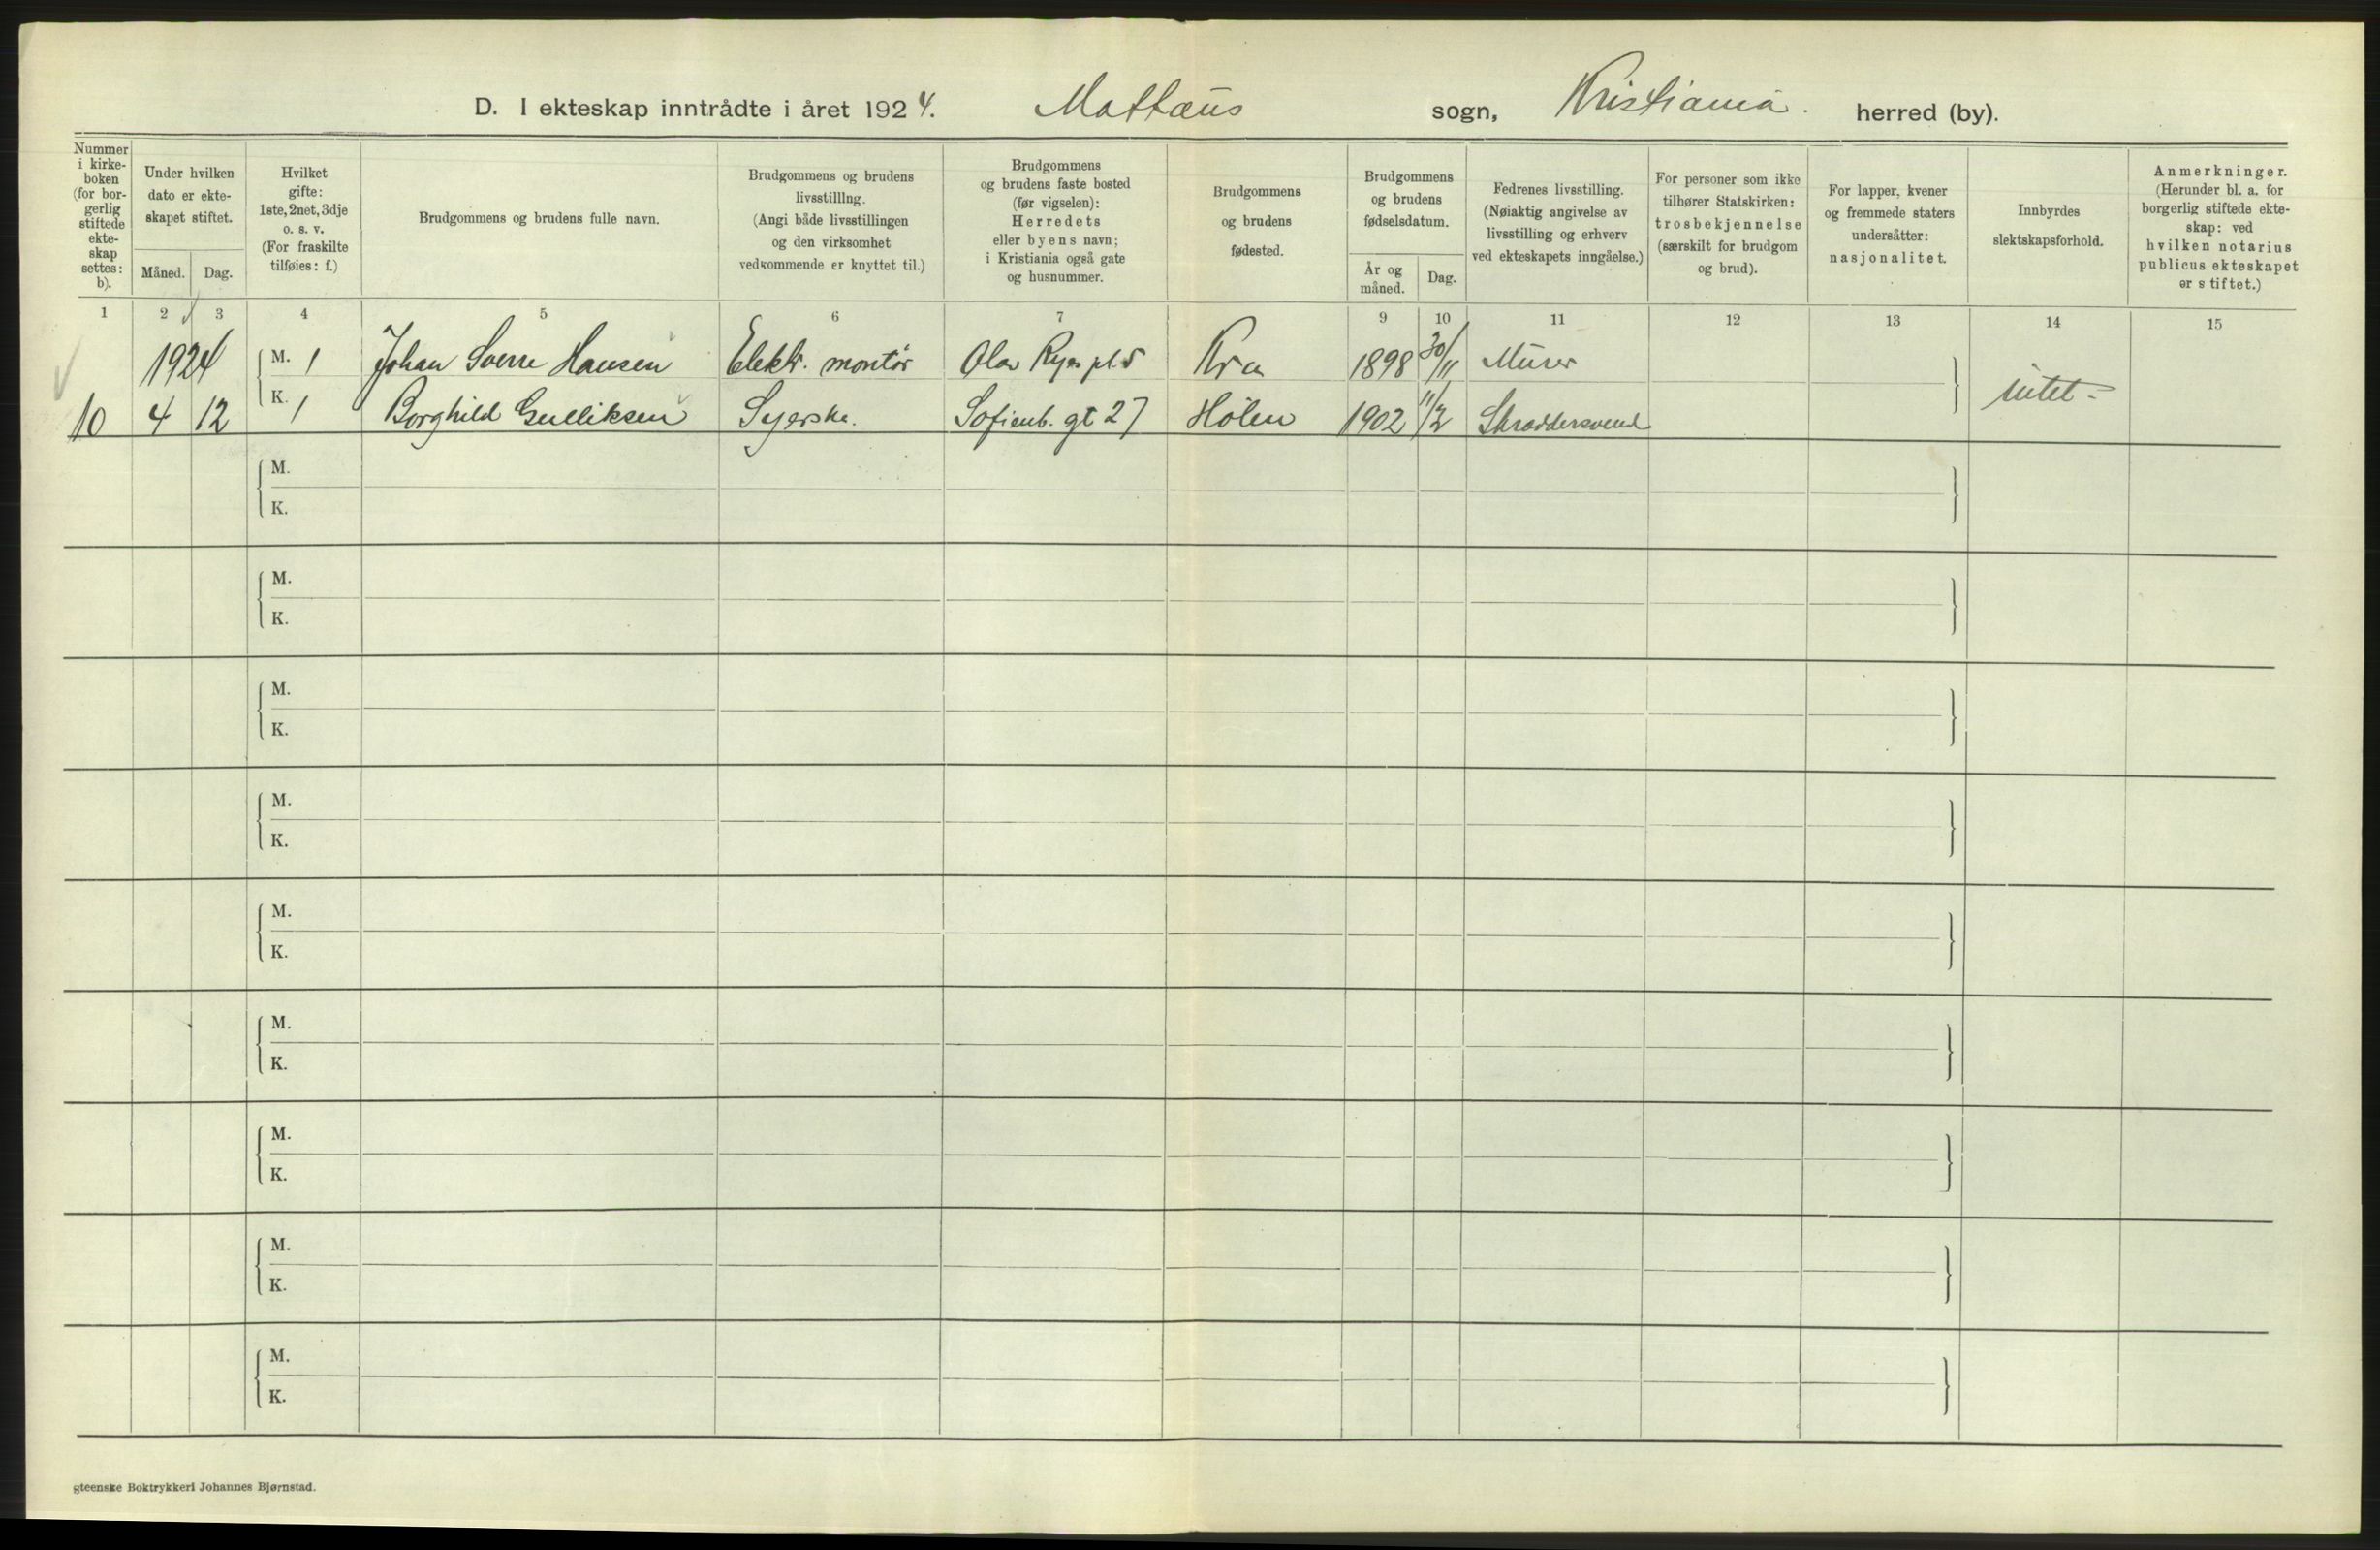 D. I ekteskap inntrådte i året 1924. Mattæus sogn, Kristiania. herred (by).
Nummer
i kirke-
boken
(for bor-
gerlig
stiftede
ekte-
skap
settes:
b).
Under hvilken
dato er ekte-
skapet stiftet.
Måned. Dag.
Hvilket
gifte:
1ste, 2net, 3dje
o. s. v.
(For fraskilte
tilføies: f.)
Brudgommens og brudens fulle navn.
Brudgommens og brudens
livsstilllng.
(Angi både livsstillingen
og den virksomhet
vedkommende er knyttet til.)
Brudgommens
og brudens faste bosted
(før vigselen):
Herredets
eller byens navn;
i Kristiania også gate
og husnummer.
Brudgommens
og brudens
fødested.
Brudgommens
og brudens
fødselsdatum.
År og
måned.
Dag.
Fedrenes livsstilling.
(Nøiaktig angivelse av
livsstilling og erhverv
ved ekteskapets inngåelse.)
For personer som ikke
tilhører Statskirken:
trosbekjennelse
(særskilt for brudgom
og brud).
For lapper, kvener
og fremmede staters
undersåtter:
nasjonalitet.
Innbyrdes
slektskapsforhold.
Anmerkninger.
(Herunder bl. a. for
borgerlig stiftede ekte-
skap: ved
hvilken notarius
publicus ekteskapet
er stiftet.)
1 2 3 4 5 6 7 9 10 11 12 13 14 15
1924 M. 1 Johan Sverre Hansen Elektr. montør Olav Ryes pl. 5 Kra 1898 30/11 Murer
intet -
10 4 12 K. 1 Borghild Gulliksen Syerske. Sofienb. gt 27 Hølen 1902 11/2 Skræddersvend
M.
K.
M.
K.
M.
K.
M.
K.
M.
K.
M.
K.
M.
K.
M.
K.
M.
K.
gteenske Boktrykkeri Johannes Bjørnstad.